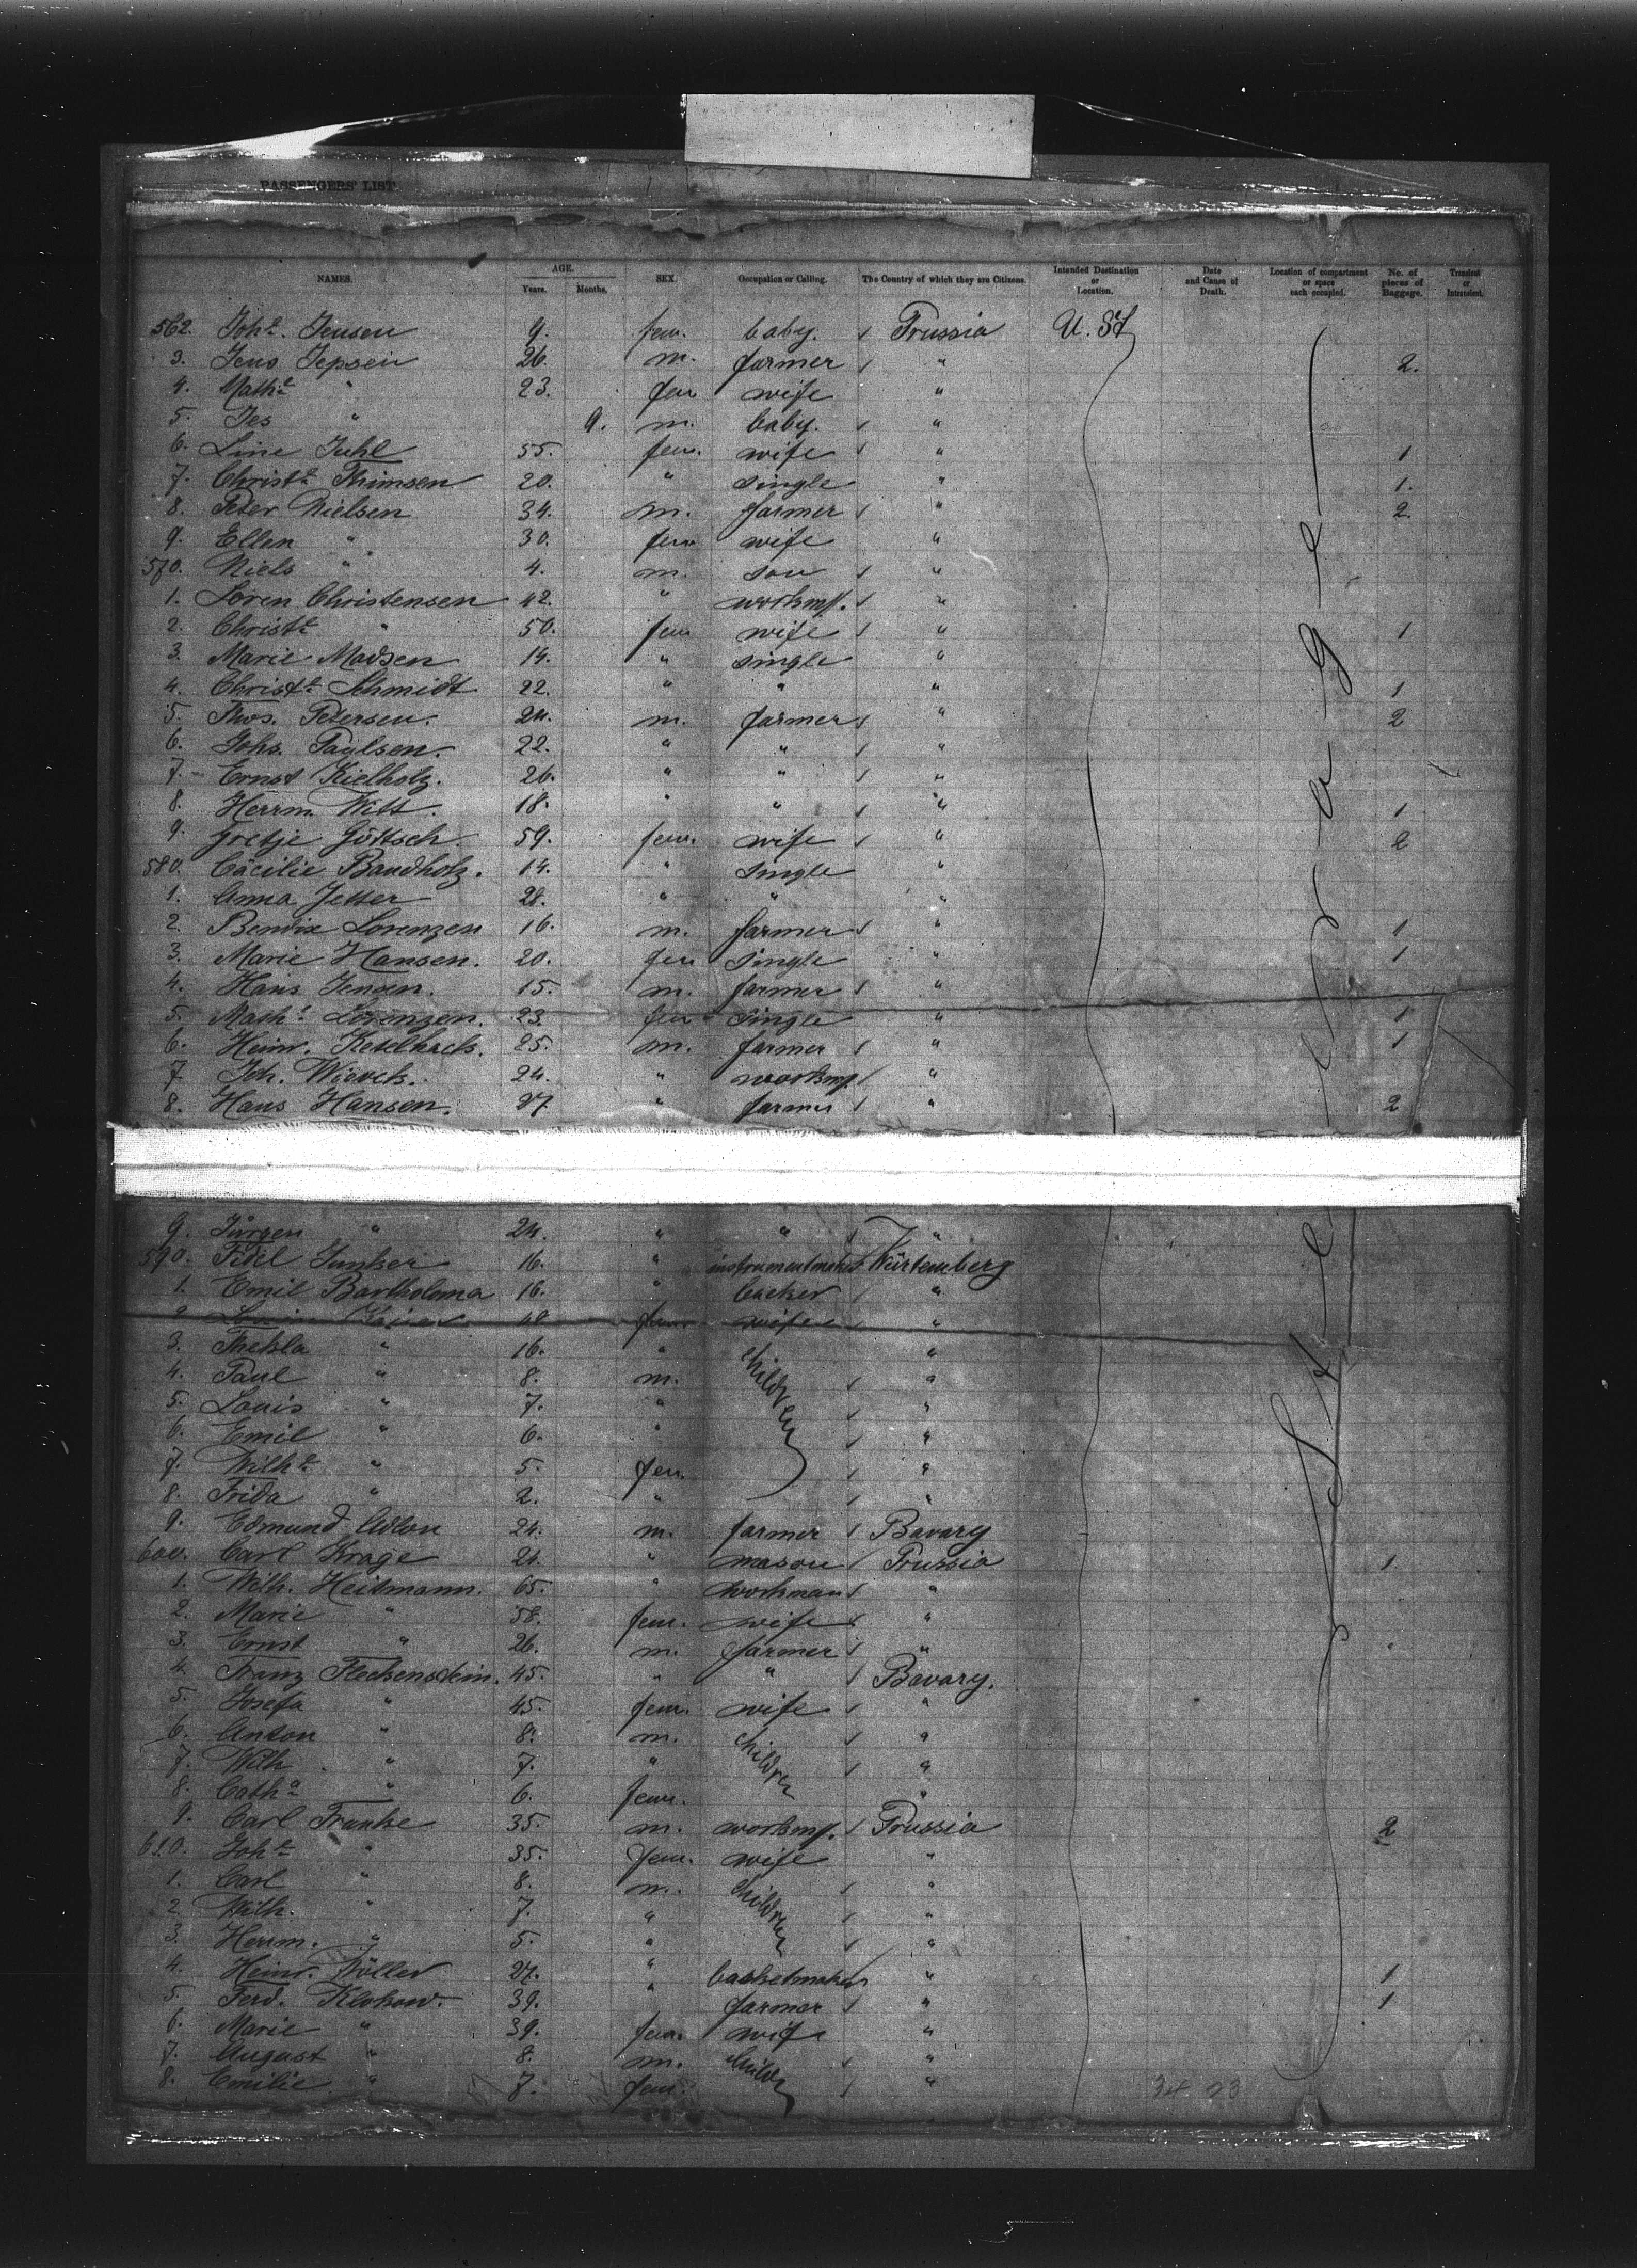 PASSENGERS' LIST
NAMES. AGE. Years. Months. SEX. Occupation or Calling. The Country of which they are Citizens. Intended Destination or Location. Date and Cause of Death. Location of compartment or space each occupied. No. of pieces of Baggage. Transient or Intransient.
562. Johe. Jensen 9. fem. baby. Prussia U. St
3. Jens Jepsen 26. m. farmer " 2.
4. Mathe " 23. fem wife "
5. Jes " 9. m. baby. "
6. Line Juhl 55. fem. wife " 1
7. Christe Thimsen 20. " single " 1.
8. Peter Nielsen 34. m. farmer " 2.
9. Ellen " 30. fem wife "
570. Niels " 4. m. son "
1. Soren Christensen 42. " workmn. "
2. Christe " 50. fem wife " 1
3. Marie Madsen 14. " single "
4. Christe Schmidt 22. " " " 1
5. Thos. Petersen. 24. m. farmer " 2
6. Johs. Paulsen. 22. " " "
7. Ernst Kielholz. 26. " " "
8. Herrm. Witt. 18. " " " 1
9. Gretje Göttsch. 59. fem. wife " 2
580. Cäcilie Bandholz. 14. " single
1. Anna Jetter 28. " " "
2. Bendix Lorenzen 16. m. farmer " 1
3. Marie Hansen. 20. fem single " 1
4. Hans Jensen. 15. m. farmer "
5. Mathe. Lorenzen. 23. fem single " 1
6. Heinr. Ketelhack. 25. m. farmer " 1
7. Joh. Wievck. 24. " workmn. "
8. Hans Hansen. 27. " farmer " 2
9. Jürgen " 24. " " "
590. Fidel Junker 16. " instrumentmaker Würtemberg
1. Emil Bartholoma 16. " backer "
fem. wife "
3. Thekla " 16. " children "
4. Paul " 8. m. "
5. Louis " 7. " "
6. Emil " 6. " "
7. Wilhe " 5. fem. "
8. Frida " 2. " "
9. Edmund Adlon 24. m. farmer Bavary
600. Carl Krage 24. " mason Prussia 1.
1. Wilh. Heitmann. 65. " workman "
2. Marie " 58. fem. wife "
3. Ernst " 26. m. farmer "
4. Franz Fleckenstein. 45. " " Bavary.
5. Josefa " 45. fem. wife "
6. Anton " 8. m. children "
7. Wilh " 7. " "
8. Catha " 6. fem. "
9. Carl Franke 35. m. workmn. Prussia 2
610. Johe " 35. fem. wife "
1. Carl " 8. m. children "
2. Wilh. " 7. " "
3. Herrm. " 5. " "
4. Heinr. Wöller 27. " basketmaker " 1
5. Ferd. Klokow. 39. " farmer " 1
6. Marie " 39. fem. wife "
7. August " 8. m. childr "
8. Emilie " 7. fem. "
Steerage